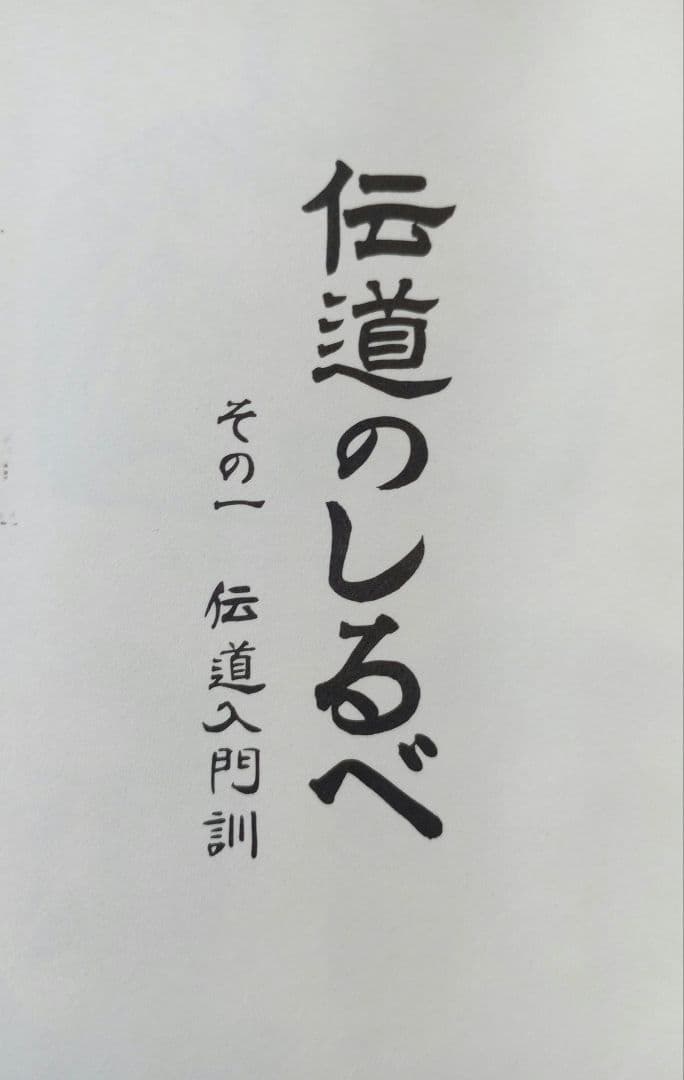 伝道のしるべ
その一 伝道入門訓